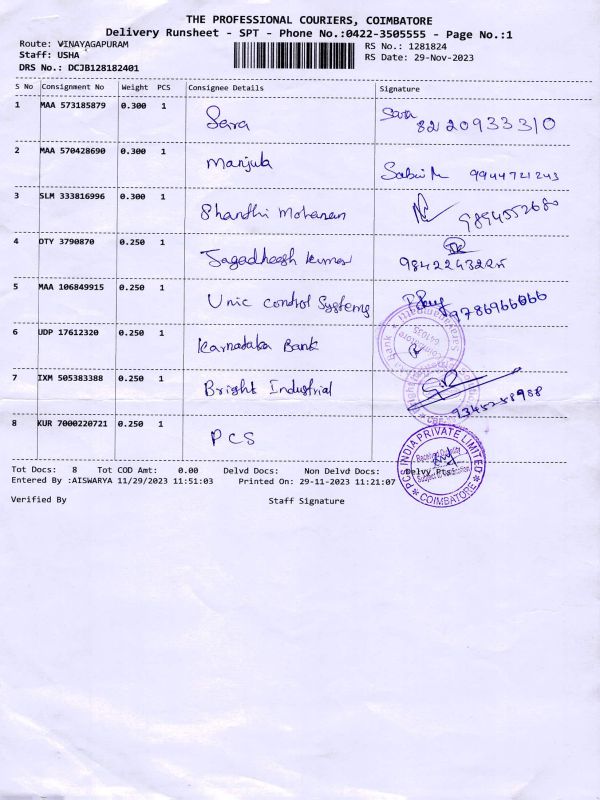 THE PROFESSIONAL COURIERS, COIMBATORE
Delivery Runsheet - SPT - Phone No.:0422-3505555 - Page No.:1
Route: WINAYAGAPURAM
RS No.: 1281824
Staff: USHA
RS Date: 29-Nov-2023
DRS No.: DCJB128182401
S No Consignment No Weight PCS Consignee Details Signature
1 MAA 573185879 0.300 1 Sara 8220933310
2 MAA 570428690 0.300 1 Manjula 9944721243
3 SLM 333816996 0.300 1 Shanthi Mohanan 9894552680
4 DTY 3790870 0.250 1 Jagadheesh Kumar 9842243225
5 MAA 106849915 0.250 1 Unic Control Systems 9786966666
6 UDP 17612320 0.250 1 Karnataka Bank
7 IXM 505383388 0.250 1 Bright Industrial 9345258988
8 KUR 7000220721 0.250 1 PCS
PCS INDIA PRIVATE LIMITED
COIMBATORE
Tot Docs: 8 Tot COD Amt: 0.00 Delvd Docs: Non Delvd Docs: Delvy Pts:
Entered By :AISWARYA 11/29/2023 11:51:03 Printed On: 29-11-2023 11:21:07
Verified By Staff Signature